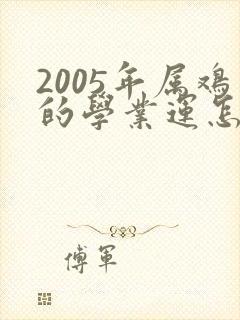 2005年属鸡
的學業運怎
傅軍